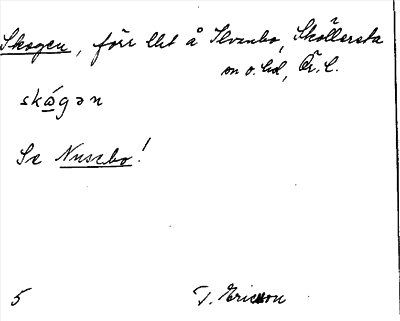 Skogen, förr llt å Stvenbo, Sköllersta
sn o. hd, Ör. l.
skógən
Se Nusebo!
5 T. Ericsson